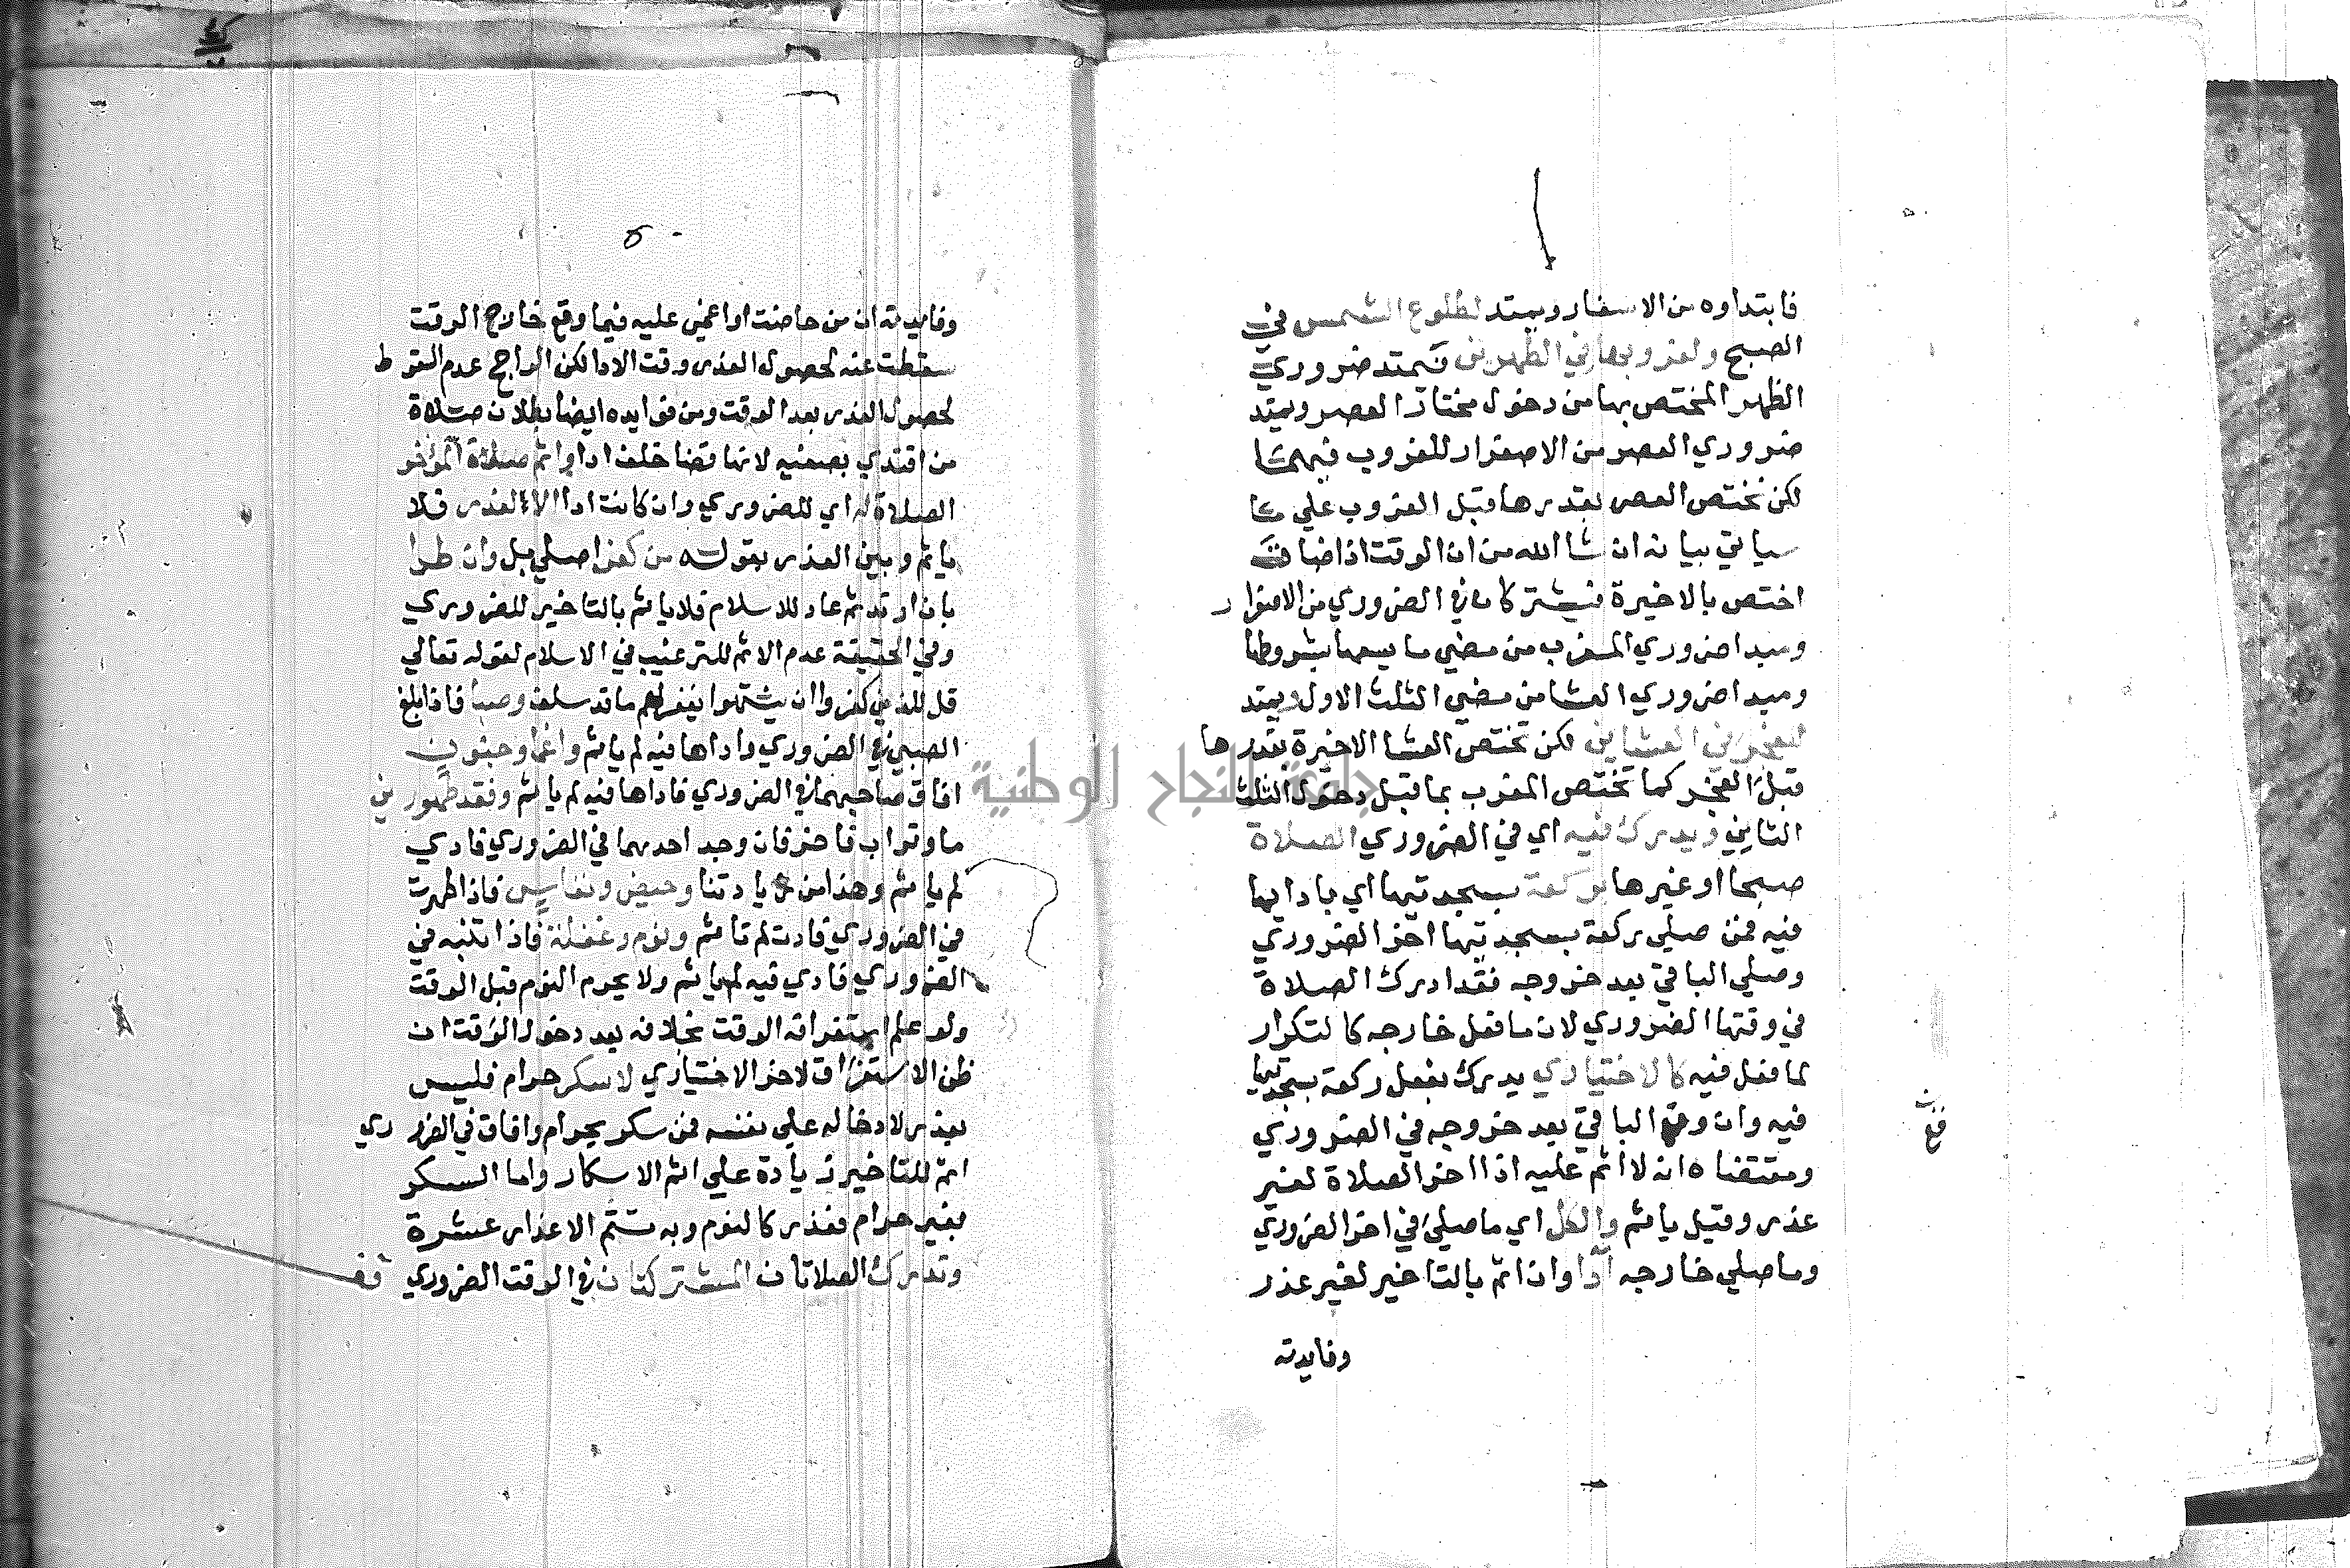 فابتداوه من الاسفار ويمتد لطلوع الشمس في
الصبح ولغروبها في الظهرين فيمتد ضروري
الظهر المختص بها من دخول مختار العصر ويمتد
ضروري العصر من الاصفرار للغروب فيهما
لكن تختص العصر بقدرها قبل الغروب علي كا
سياتي بيانه ان شا الله من ان الوقت اذا ضاق
اختص بالاخيرة فيشتركا في الضروري من الاصفرار
ومبدا ضروري المغرب من مضي ما يسعها بشروطها
ومبدا ضروري العشا من مضي الثلث الاول ويمتد
للفجر في العشاين لكن تختص العشا الاخيرة بقدرها
قبل الفجر كما تختص المغرب بما قبل دخول الثلث
الثاني ويدرك فيه اي في الضروري الصلاة
صبحا او غيرها بركعة بسجدتيها اي بادايها
فيه فمن صلي ركعة بسجدتيها اخر الضروري
وصلي الباقي بعد خروجه فقد ادرك الصلاة
في وقتها الضروري لان ما فعل خارجه كالتكرار
لما فعل فيه كالاختياري يدرك بفعل ركعة بسجدتيها
فيه وان وقع الباقي بعد خروجه في الضروري
ومقتضاه انه لا اثم عليه اذا اخر الصلاة لغير
عذر وقيل ياثم والكل اي ما صلي في اخر الضروري
وما صلي خارجه ادا وان اثم بالتاخير لغير عذر
وفايدته
قف
وفايدته ان من حاضت او اغمي عليه فيما وقع خارج الوقت
سقطت عنه لحصول العذر وقت الادا لكن الراجح عدم السقوط
لحصول العذر بعد الوقت ومن فوايده ايضا بطلان صلاة
من اقتدي بصفيه لانها قضا خلف ادا واثم صلاة المؤخر
الصلاة له اي للضروري وان كانت ادا الا لعذر فلا
ياثم وبين العذر بقوله من كفر اصلي بل وان طرا
بان ارتد ثم عاد للاسلام فلا ياثم بالتاخير للضروري
وفي الحقيقة عدم الاثم للترغيب في الاسلام لقوله تعالي
قل للذين كفروا ان ينتهوا يغفر لهم ما قد سلف وصبا فاذا بلغ
الصبي في الضروري واداها فيه لم ياثم واغما وجنون
افاق صاحبهما في الضروري فاداها فيه لم ياثم وفقد طهورين
ما وتراب فاخر فان وجد احدهما في الضروري فادي
لم ياثم وهذا من زيادتنا وحيض ونفاس فاذا طهرت
في الضروري فادت لم تاثم ونوم وغفلة فاذا انتبه في
الضروري فادي فيه لم ياثم ولا يحرم النوم قبل الوقت
ولو علم استغراقه الوقت بخلافه بعد دخول الوقت ان
ظن الاستغراق لاخر الاختياري لا سكر حرام فليس
بعذر لادخاله علي نفسه فمن سكر بحرام وافاق في الضروري
اثم للتاخير زيادة علي اثم الاسكار واما السكر
بغير حرام فعذر كالنوم وبه تتم الاعذار عشرة
وتدرك الصلاتان المشتركتان في الوقت الضروري